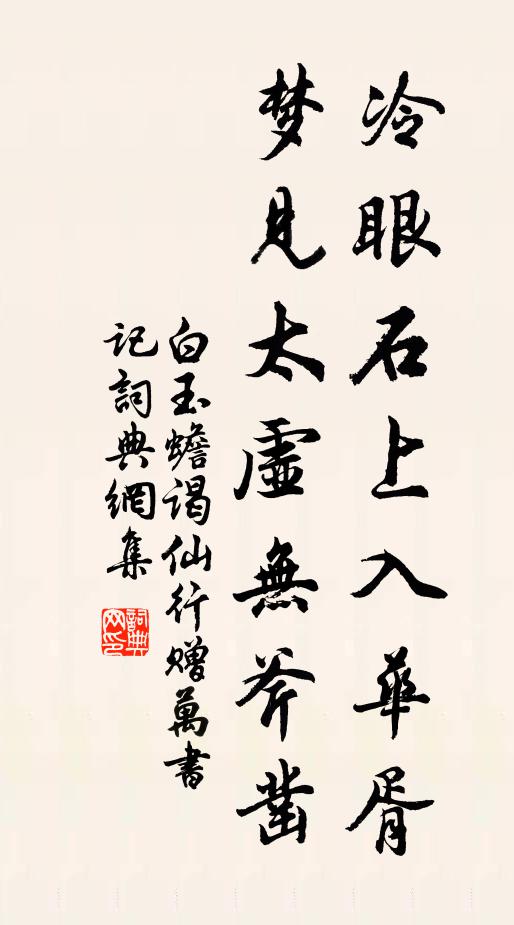 冷眼石上入華胥
梦見太虛無斧凿
白玉蟾谒仙行赠萬書
记詞典網集
詞典网印